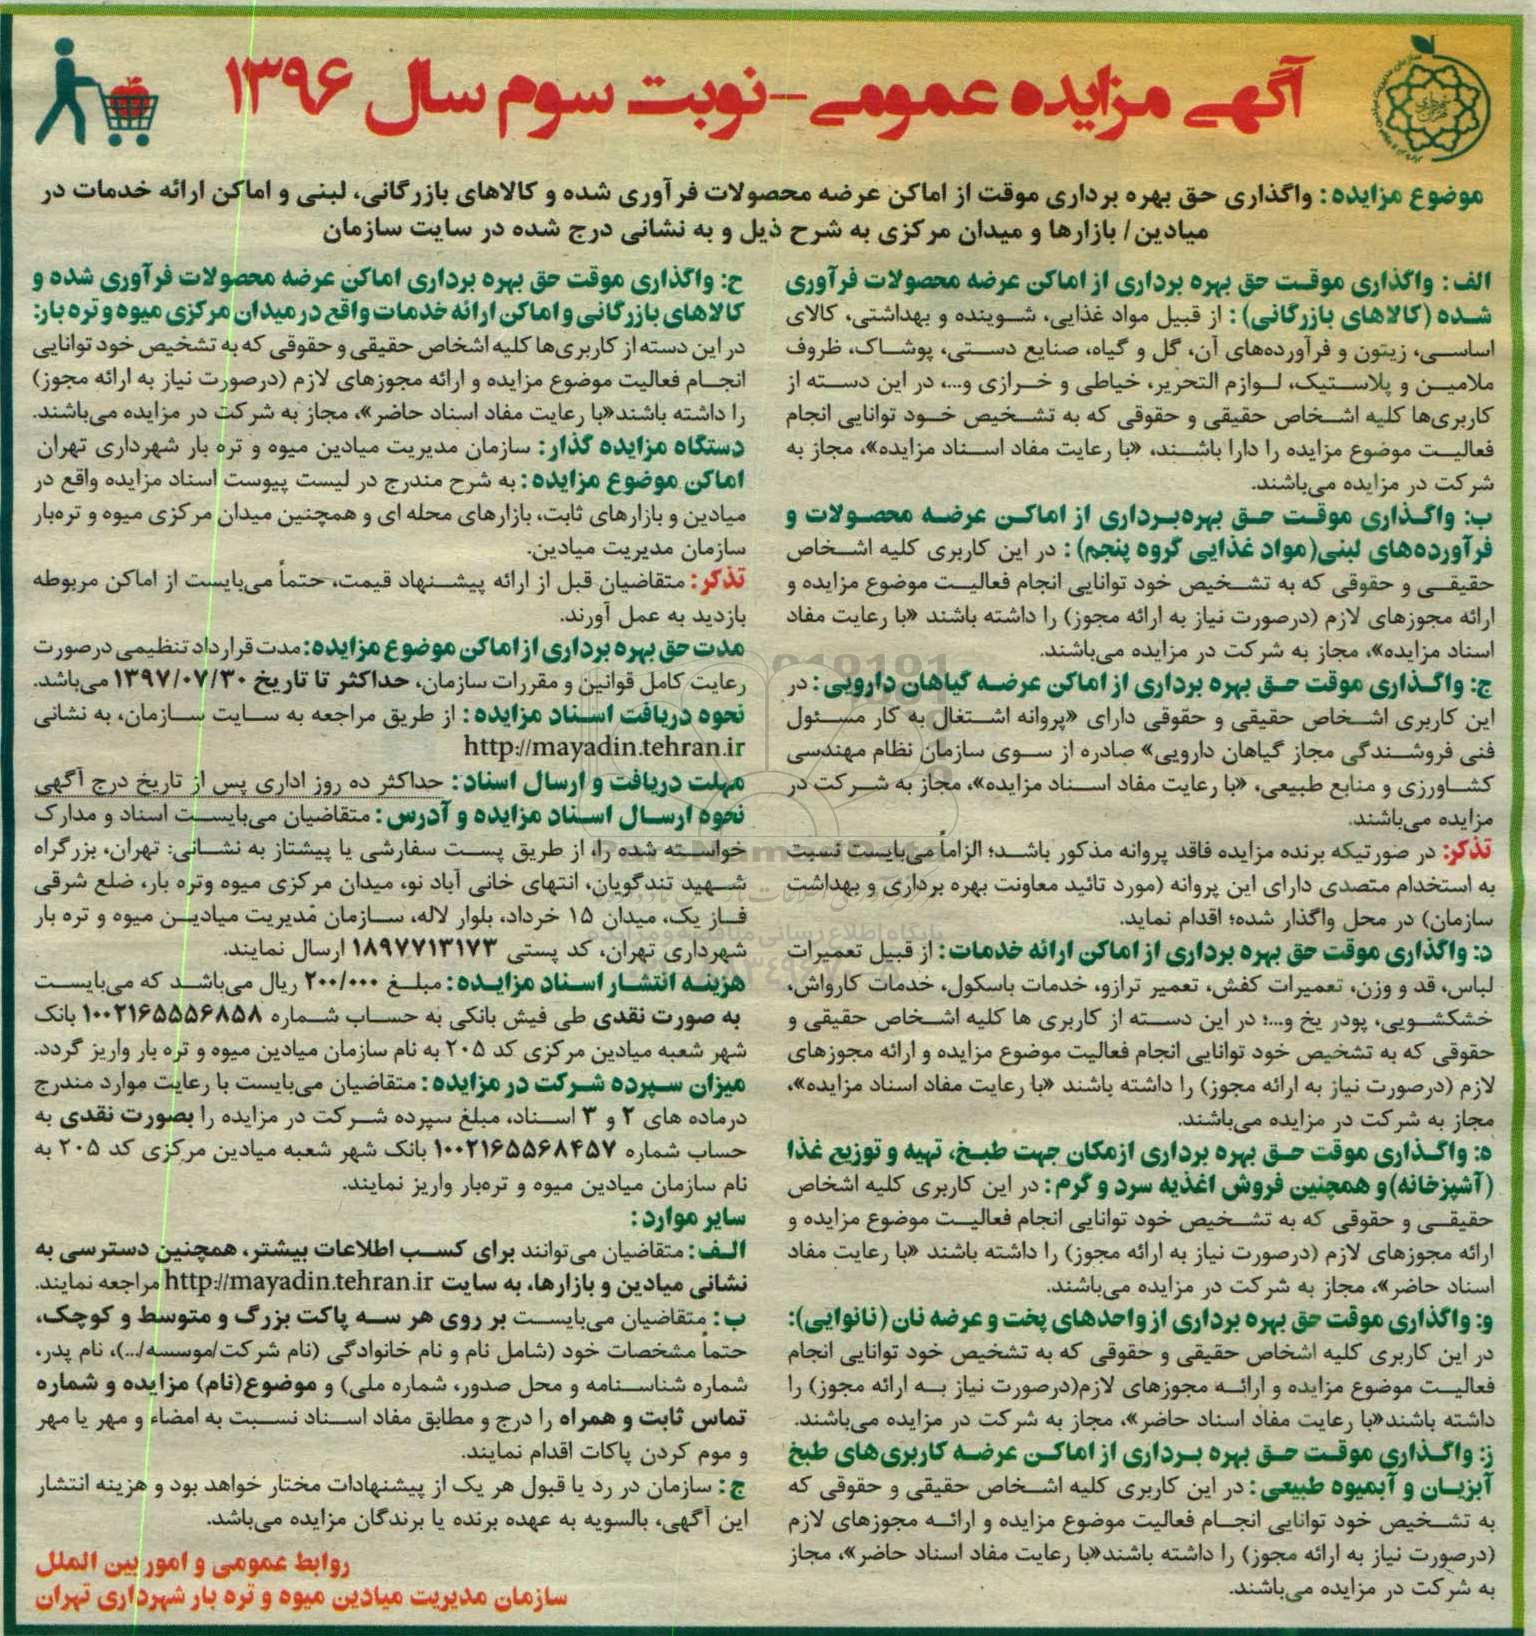 آگهی مزایده عمومی-نوبت سوم سال ۱۳۹۶
موضوع مزایده: واگذاری حق بهره برداری موقت از اماکن عرضه محصولات فرآوری شده و کالاهای بازرگانی، لبنی و اماکن ارائه خدمات در
میادین/ بازارها و میدان مرکزی به شرح ذیل و به نشانی درج شده در سایت سازمان
الف: واگذاری موقت حق بهره برداری از اماکن عرضه محصولات فرآوری
شده (کالاهای بازرگانی): از قبیل مواد غذایی، شوینده و بهداشتی، کالای
اساسی، زیتون و فرآورده‌های آن، گل و گیاه، صنایع دستی، پوشاک، ظروف
ملامین و پلاستیک، لوازم التحریر، خیاطی و خرازی و...، در این دسته از
کاربری‌ها کلیه اشخاص حقیقی و حقوقی که به تشخیص خود توانایی انجام
فعالیت موضوع مزایده را دارا باشند، «با رعایت مفاد اسناد مزایده»، مجاز به
شرکت در مزایده می‌باشند.
ب: واگذاری موقت حق بهره‌برداری از اماکن عرضه محصولات و
فرآورده‌های لبنی(مواد غذایی گروه پنجم): در این کاربری کلیه اشخاص
حقیقی و حقوقی که به تشخیص خود توانایی انجام فعالیت موضوع مزایده و
ارائه مجوزهای لازم (درصورت نیاز به ارائه مجوز) را داشته باشند «با رعایت مفاد
اسناد مزایده»، مجاز به شرکت در مزایده می‌باشند.
ج: واگذاری موقت حق بهره برداری از اماکن عرضه گیاهان دارویی: در
این کاربری اشخاص حقیقی و حقوقی دارای «پروانه اشتغال به کار مسئول
فنی فروشندگی مجاز گیاهان دارویی» صادره از سوی سازمان نظام مهندسی
کشاورزی و منابع طبیعی، «با رعایت مفاد اسناد مزایده»، مجاز به شرکت در
مزایده می‌باشند.
تذکر: در صورتیکه برنده مزایده فاقد پروانه مذکور باشد؛ الزاماً می‌بایست نسبت
به استخدام متصدی دارای این پروانه (مورد تائید معاونت بهره برداری و بهداشت
سازمان) در محل واگذار شده؛ اقدام نماید.
د: واگذاری موقت حق بهره برداری از اماکن ارائه خدمات: از قبیل تعمیرات
لباس، قد و وزن، تعمیرات کفش، تعمیر ترازو، خدمات باسکول، خدمات کارواش،
خشکشویی، پودر یخ و...؛ در این دسته از کاربری ها کلیه اشخاص حقیقی و
حقوقی که به تشخیص خود توانایی انجام فعالیت موضوع مزایده و ارائه مجوزهای
لازم (درصورت نیاز به ارائه مجوز) را داشته باشند «با رعایت مفاد اسناد مزایده»،
مجاز به شرکت در مزایده می‌باشند.
ه: واگذاری موقت حق بهره برداری ازمکان جهت طبخ، تهیه و توزیع غذا
(آشپزخانه)و همچنین فروش اغذیه سرد و گرم: در این کاربری کلیه اشخاص
حقیقی و حقوقی که به تشخیص خود توانایی انجام فعالیت موضوع مزایده و
ارائه مجوزهای لازم (درصورت نیاز به ارائه مجوز) را داشته باشند «با رعایت مفاد
اسناد حاضر»، مجاز به شرکت در مزایده می‌باشند.
و: واگذاری موقت حق بهره برداری از واحدهای پخت و عرضه نان (نانوایی):
در این کاربری کلیه اشخاص حقیقی و حقوقی که به تشخیص خود توانایی انجام
فعالیت موضوع مزایده و ارائه مجوزهای لازم(درصورت نیاز به ارائه مجوز) را
داشته باشند«با رعایت مفاد اسناد حاضر»، مجاز به شرکت در مزایده می‌باشند.
ز: واگذاری موقت حق بهره برداری از اماکن عرضه کاربری‌های طبخ
آبزیان و آبمیوه طبیعی: در این کاربری کلیه اشخاص حقیقی و حقوقی که
به تشخیص خود توانایی انجام فعالیت موضوع مزایده و ارائه مجوزهای لازم
(درصورت نیاز به ارائه مجوز) را داشته باشند«با رعایت مفاد اسناد حاضر»، مجاز
به شرکت در مزایده می‌باشند.
ح: واگذاری موقت حق بهره برداری اماکن عرضه محصولات فرآوری شده و
کالاهای بازرگانی و اماکن ارائه خدمات واقع در میدان مرکزی میوه و تره بار:
در این دسته از کاربری‌ها کلیه اشخاص حقیقی و حقوقی که به تشخیص خود توانایی
انجام فعالیت موضوع مزایده و ارائه مجوزهای لازم (درصورت نیاز به ارائه مجوز)
را داشته باشند«با رعایت مفاد اسناد حاضر»، مجاز به شرکت در مزایده می‌باشند.
دستگاه مزایده گذار: سازمان مدیریت میادین میوه و تره بار شهرداری تهران
اماکن موضوع مزایده: به شرح مندرج در لیست پیوست اسناد مزایده واقع در
میادین و بازارهای ثابت، بازارهای محله ای و همچنین میدان مرکزی میوه و تره‌بار
سازمان مدیریت میادین.
تذکر: متقاضیان قبل از ارائه پیشنهاد قیمت، حتماً می‌بایست از اماکن مربوطه
بازدید به عمل آورند.
مدت حق بهره برداری از اماکن موضوع مزایده: مدت قرارداد تنظیمی درصورت
رعایت کامل قوانین و مقررات سازمان، حداکثر تا تاریخ ۱۳۹۷/۰۷/۳۰ می‌باشد.
نحوه دریافت اسناد مزایده: از طریق مراجعه به سایت سازمان، به نشانی
http://mayadin.tehran.ir
مهلت دریافت و ارسال اسناد: حداکثر ده روز اداری پس از تاریخ درج آگهی
نحوه ارسال اسناد مزایده و آدرس: متقاضیان می‌بایست اسناد و مدارک
خواسته شده را، از طریق پست سفارشی یا پیشتاز به نشانی: تهران، بزرگراه
شهید تندگویان، انتهای خانی آباد نو، میدان مرکزی میوه وتره بار، ضلع شرقی
فاز یک، میدان ۱۵ خرداد، بلوار لاله، سازمان مدیریت میادین میوه و تره بار
شهرداری تهران، کد پستی ۱۸۹۷۷۱۳۱۷۳ ارسال نمایند.
هزینه انتشار اسناد مزایده: مبلغ ۲۰۰/۰۰۰ ریال می‌باشد که می‌بایست
به صورت نقدی طی فیش بانکی به حساب شماره ۱۰۰۲۱۶۵۵۵۶۸۵۸ بانک
شهر شعبه میادین مرکزی کد ۲۰۵ به نام سازمان میادین میوه و تره بار واریز گردد.
میزان سپرده شرکت در مزایده: متقاضیان می‌بایست با رعایت موارد مندرج
درماده های ۲ و ۳ اسناد، مبلغ سپرده شرکت در مزایده را بصورت نقدی به
حساب شماره ۱۰۰۲۱۶۵۵۶۸۴۵۷ بانک شهر شعبه میادین مرکزی کد ۲۰۵ به
نام سازمان میادین میوه و تره‌بار واریز نمایند.
سایر موارد:
الف: متقاضیان می‌توانند برای کسب اطلاعات بیشتر، همچنین دسترسی به
نشانی میادین و بازارها، به سایت http://mayadin.tehran.ir مراجعه نمایند.
ب: متقاضیان می‌بایست بر روی هر سه پاکت بزرگ و متوسط و کوچک،
حتماً مشخصات خود (شامل نام و نام خانوادگی (نام شرکت/موسسه/...)، نام پدر،
شماره شناسنامه و محل صدور، شماره ملی) و موضوع(نام) مزایده و شماره
تماس ثابت و همراه را درج و مطابق مفاد اسناد نسبت به امضاء و مهر یا مهر
و موم کردن پاکات اقدام نمایند.
ج: سازمان در رد یا قبول هر یک از پیشنهادات مختار خواهد بود و هزینه انتشار
این آگهی، بالسویه به عهده برنده یا برندگان مزایده می‌باشد.
روابط عمومی و امور بین الملل
سازمان مدیریت میادین میوه و تره بار شهرداری تهران